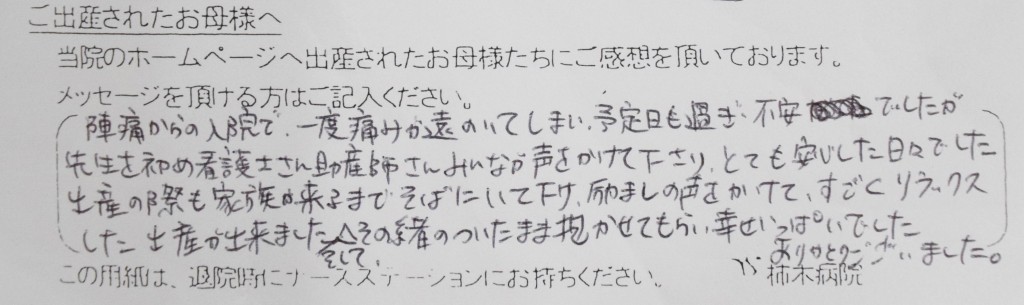 ご出産されたお母様へ
当院のホームページへ出産されたお母様たちにご感想を頂いております。
メッセージを頂ける方はご記入ください。
陣痛からの入院で、一度痛みが遠のいてしまい、予定日も過ぎ、不安でしたが
先生を初め看護士さん助産師さんみんなが声をかけて下さり、とても安心した日々でした
出産の際も家族が来るまでそばにいて下さり、励ましの声をかけて、すごくリラックス
した出産が出来ました。そして、へその緒のついたまま抱かせてもらい幸せいっぱいでした
ありがとうございました。
この用紙は、退院時にナースステーションにお持ちください。 柿木病院